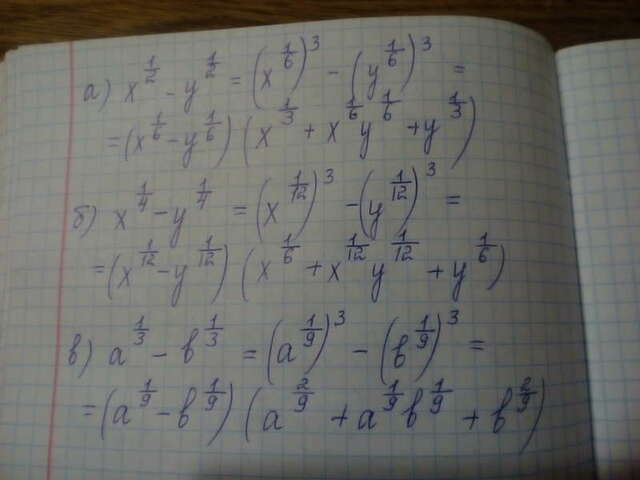 а) x^{1/2} - y^{1/2} = (x^{1/6})^3 - (y^{1/6})^3 =
= (x^{1/6} - y^{1/6}) (x^{1/3} + x^{1/6} y^{1/6} + y^{1/3})
б) x^{1/4} - y^{1/4} = (x^{1/12})^3 - (y^{1/12})^3 =
= (x^{1/12} - y^{1/12}) (x^{1/6} + x^{1/12} y^{1/12} + y^{1/6})
в) a^{1/3} - b^{1/3} = (a^{1/9})^3 - (b^{1/9})^3 =
= (a^{1/9} - b^{1/9}) (a^{2/9} + a^{1/9} b^{1/9} + b^{2/9})